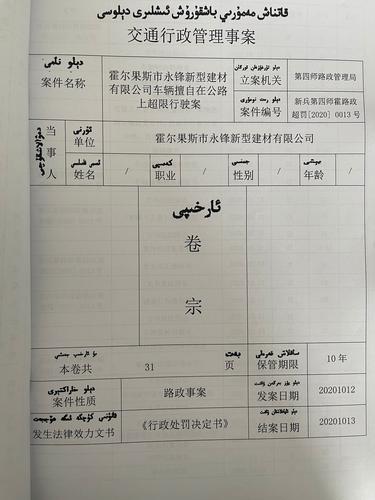 قاتناش مەمۇرىي باشقۇرۇش ئىشلىرى دېلوسى
交通行政管理事案
دېلو نامى
案件名称
霍尔果斯市永锋新型建材
有限公司车辆擅自在公路
上超限行驶案
立案机关
第四师路政管理局
案件编号
新兵第四师霍路政
超罚[2020] 0013 号
当事人
单位
霍尔果斯市永锋新型建材有限公司
姓名
/
职业
/
性别
/
年龄
/
ئارخىپى
卷
宗
本卷共
31
بەت
页
保管期限
10 年
案件性质
路政事案
发案日期
20201012
发生法律效力文书
《行政处罚决定书》
结案日期
20201013